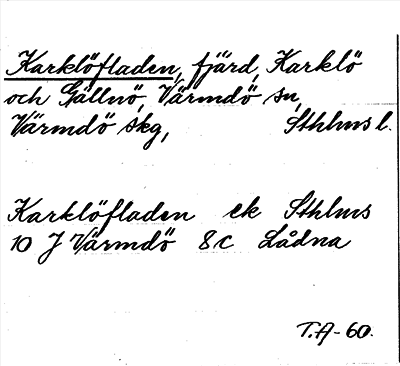 Karklöfladen, fjärd, Karklö
och Gällnö, Värmdö sn,
Värmdö skg, Sthlms l.
Karklöfladen ek Sthlms
10 J Värmdö 8c Lådna
T.A-60.